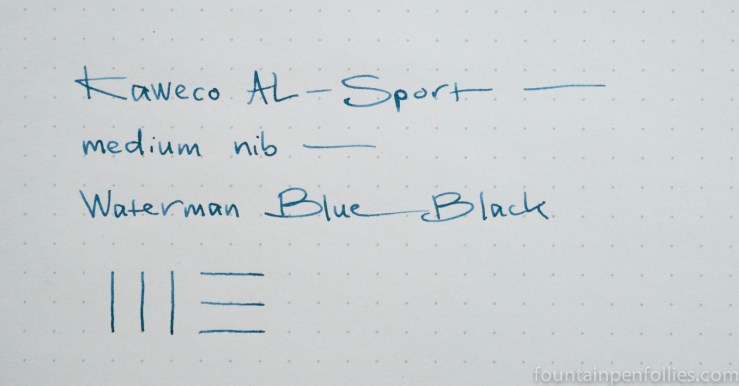 Kaweco AL-Sport —
medium nib —
Waterman Blue Black
fountainpenfollies.com